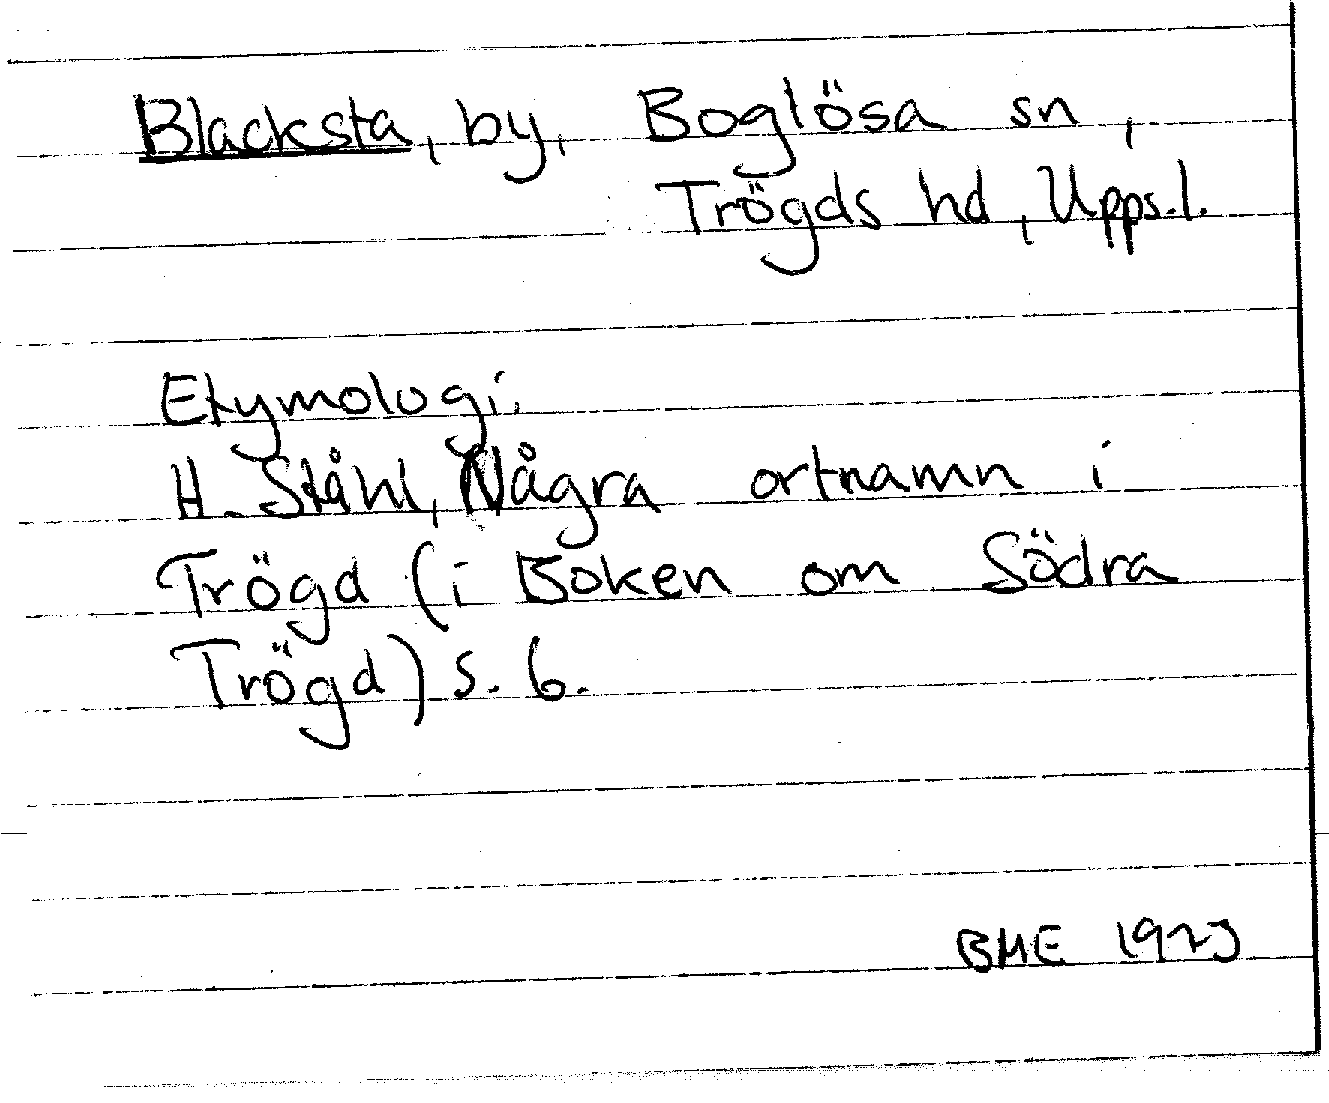 Blacksta, by, Boglösa sn,
Trögds hd, Upps.l.
Etymologi.
H. Ståhl, Några ortnamn i
Trögd (i Boken om Södra
Trögd) s. 6.
BME